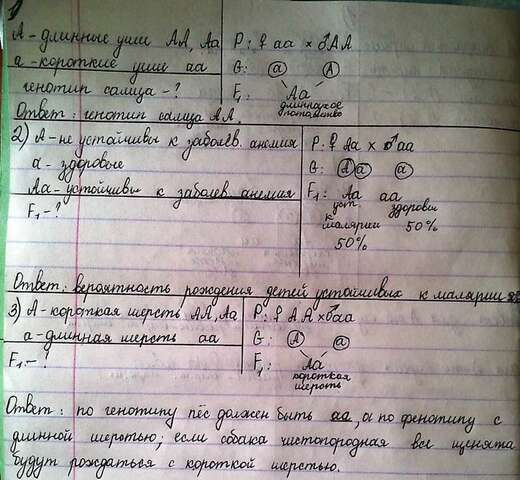 А - длинные уши АА, Аа
а - короткие уши аа
генотип самца - ?
Р: ♀ аа × ♂ АА
G: а А
F₁: Аа
длинноухое
потомство
Ответ: генотип самца АА.
2) А - не устойчивы к заболев. анемия
а - здоровые
Аа - устойчивы к заболев. анемия
F₁ - ?
Р: ♀ Аа × ♂ аа
G: А а а
F₁: Аа аа
уст. здоровы
к
малярии 50%
50%
Ответ: вероятность рождения детей устойчивых к малярии
3) А - короткая шерсть АА, Аа
а - длинная шерсть аа
F₁ - ?
Р: ♀ АА × ♂ аа
G: А а
F₁: Аа
короткая
шерсть
Ответ: по генотипу пёс должен быть аа, а по фенотипу с
длинной шерстью; если собака чистопородная все щенята
будут рождаться с короткой шерстью.